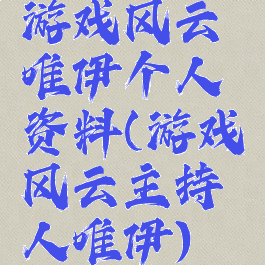 游戏风云
唯伊个人
资料(游戏
风云主持
人唯伊)